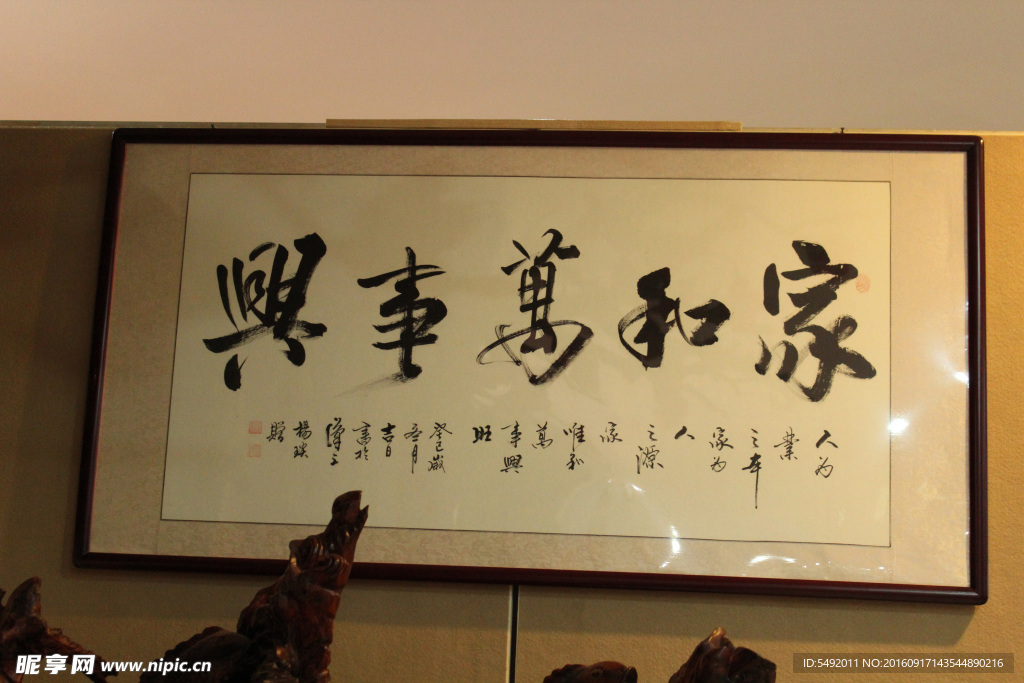 家和萬事興
人为
業
之本
家为
人
之源
家
唯和
萬
事興
旺
癸巳歲
吉日
書於
楊
贈
昵享网 www.nipic.cn
ID:5492011 NO:20160917143544890216